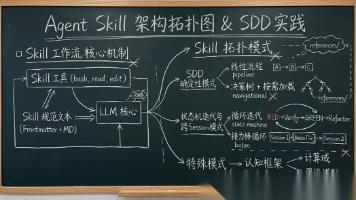 Agent Skill 架构拓扑图 & SDD实践
Skill 工作流核心机制
Skill 工具 (bash, read, edit)
Skill 规范文本
(Frontmatter + MD)
LLM 核心
Skill 拓扑模式
references/
SDD
确定性模式
线性流程
pipeline
A → B → C
决策树 + 按需加载
navigational
references/
状态机迭代与
跨Session模式
循环迭代
state machine
RED→Verify→GREEN→Refactor
接力棒循环
baton
Session 1
Baton File
Session 2
特殊模式
认知框架
计算域